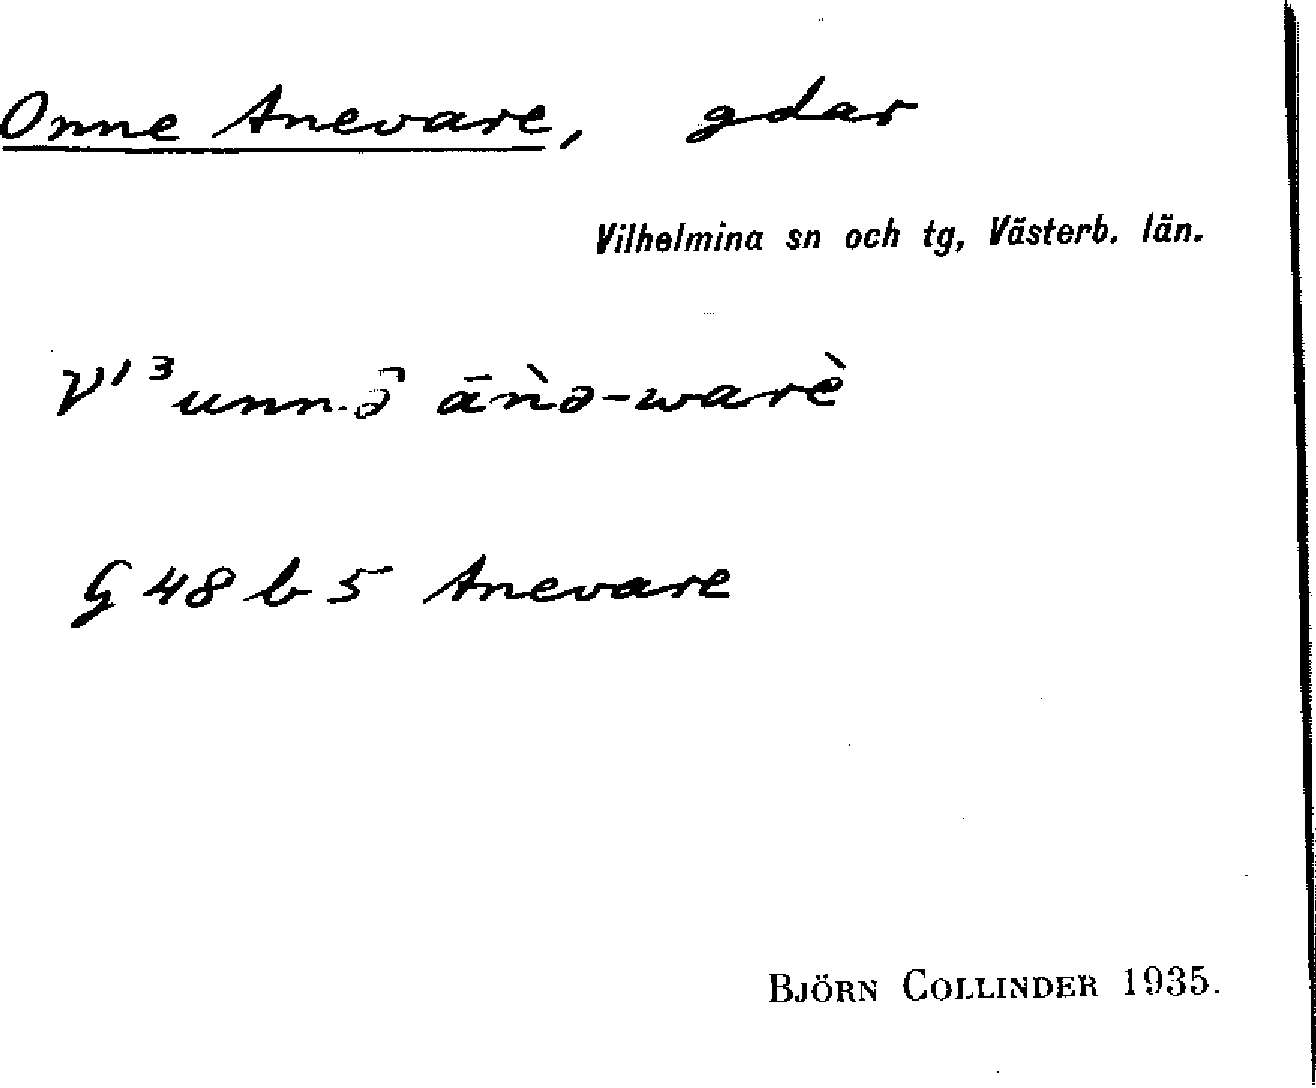 Onne Anevare, gdar
Vilhelmina sn och tg, Västerb. län.
V1 ³unn.ə̑ āǹə-warè
G 48 b 5 Anevare
BJÖRN COLLINDER 1935.